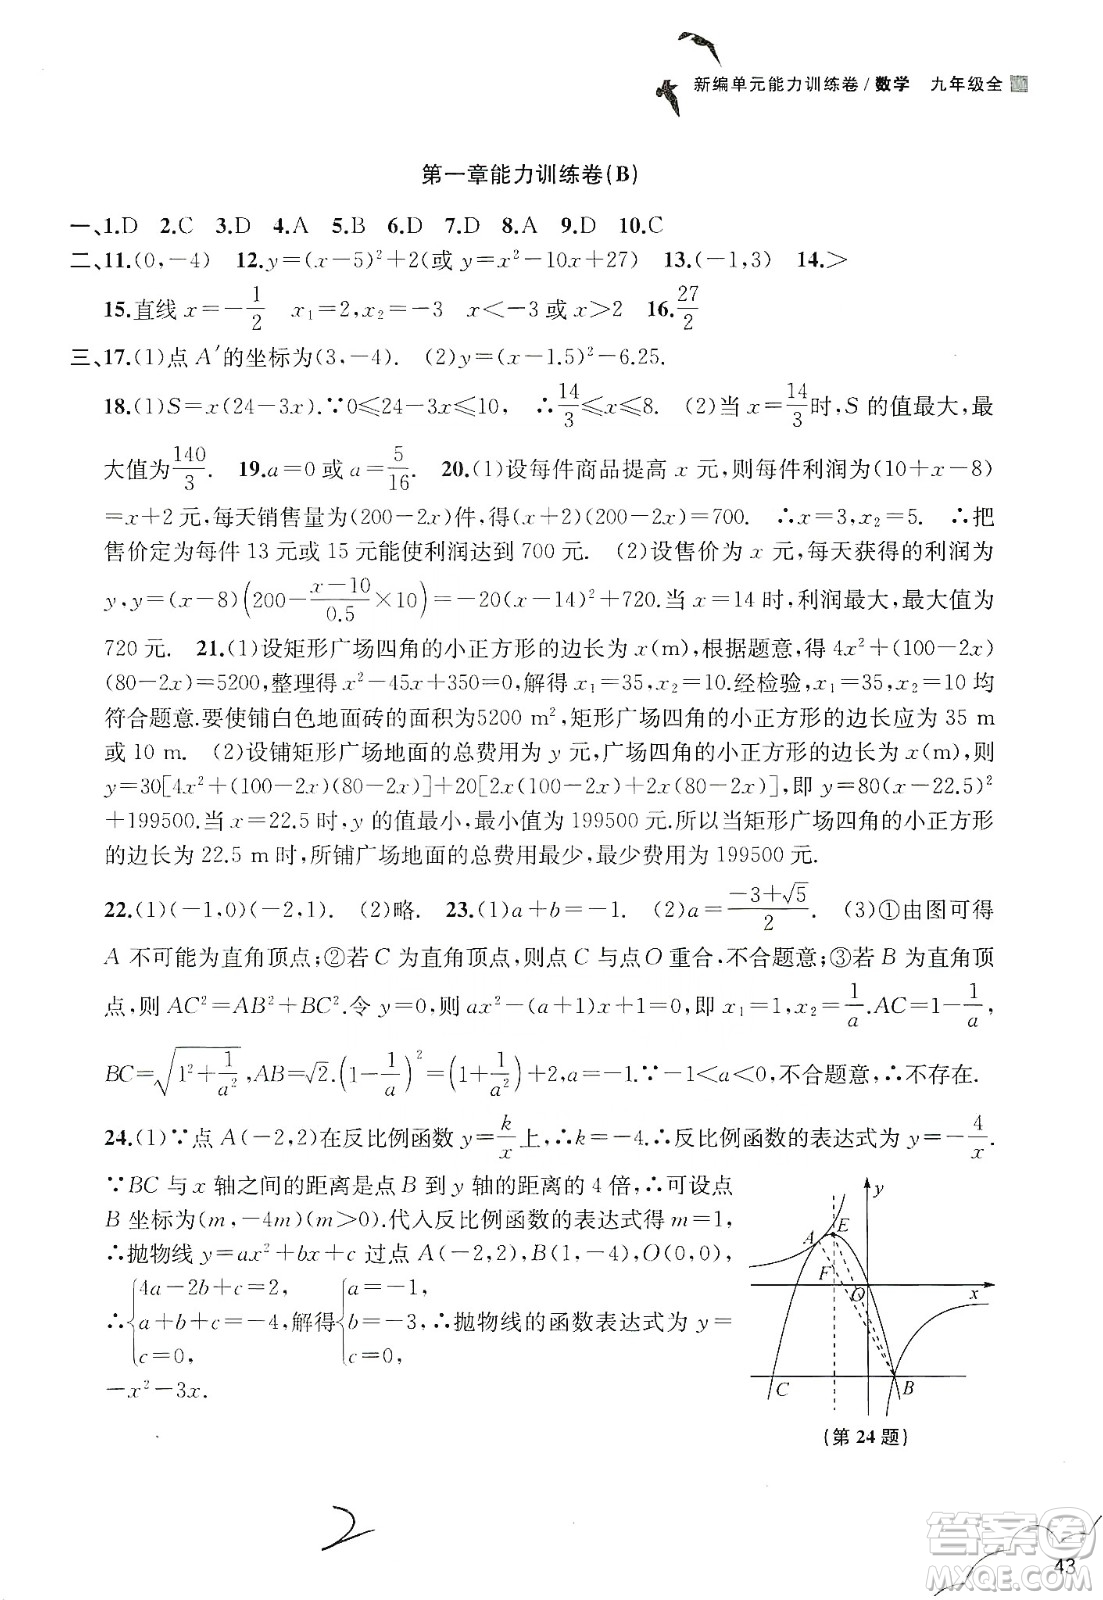 新编单元能力训练卷/数学 九年级全
第一章能力训练卷(B)
一、1.D 2.C 3.D 4.A 5.B 6.D 7.D 8.A 9.D 10.C
二、11.(0,-4) 12.y=(x-5)²+2(或 y=x²-10x+27) 13.(-1,3) 14.>
15.直线 x=-1/2 x₁=2,x₂=-3 x<-3 或 x>2 16.27/2
三、17.(1)点 A′的坐标为(3,-4). (2)y=(x-1.5)²-6.25.
18.(1)S=x(24-3x).∵0≤24-3x≤10, ∴14/3≤x≤8. (2)当 x=14/3时,S 的值最大,最
大值为140/3. 19.a=0 或 a=5/16. 20.(1)设每件商品提高 x 元,则每件利润为(10+x-8)
=x+2 元,每天销售量为(200-2x)件,得(x+2)(200-2x)=700. ∴x=3,x₂=5. ∴把
售价定为每件 13 元或 15 元能使利润达到 700 元. (2)设售价为 x 元,每天获得的利润为
y,y=(x-8)(200-(x-10)/0.5×10)=-20(x-14)²+720.当 x=14 时,利润最大,最大值为
720 元. 21.(1)设矩形广场四角的小正方形的边长为 x(m),根据题意,得 4x²+(100-2x)
(80-2x)=5200,整理得 x²-45x+350=0,解得 x₁=35,x₂=10.经检验,x₁=35,x₂=10 均
符合题意.要使铺白色地面砖的面积为5200 m²,矩形广场四角的小正方形的边长应为 35 m
或 10 m. (2)设铺矩形广场地面的总费用为 y 元,广场四角的小正方形的边长为 x(m),则
y=30[4x²+(100-2x)(80-2x)]+20[2x(100-2x)+2x(80-2x)],即 y=80(x-22.5)²
+199500.当 x=22.5 时,y 的值最小,最小值为 199500 元.所以当矩形广场四角的小正方形
的边长为 22.5 m 时,所铺广场地面的总费用最少,最少费用为 199500 元.
22.(1)(-1,0)(-2,1). (2)略. 23.(1)a+b=-1. (2)a=(-3+√5)/2. (3)①由图可得
A 不可能为直角顶点;②若 C 为直角顶点,则点 C 与点O 重合,不合题意;③若 B 为直角顶
点,则 AC²=AB²+BC².令 y=0,则 ax²-(a+1)x+1=0,即 x₁=1,x₂=1/a.AC=1-1/a,
BC=√(1²+1/a²),AB=√2.(1-1/a)²=(1+1/a²)+2,a=-1.∵-1<a<0,不合题意,∴不存在.
24.(1)∵点 A(-2,2)在反比例函数 y=k/x上,∴k=-4.∴反比例函数的表达式为 y=-4/x.
∵BC 与 x 轴之间的距离是点 B 到 y 轴的距离的 4 倍,∴可设点
B 坐标为(m,-4m)(m>0).代入反比例函数的表达式得 m=1,
∴抛物线 y=ax²+bx+c 过点 A(-2,2),B(1,-4),O(0,0),
∴{4a-2b+c=2, a+b+c=-4, c=0, 解得{a=-1, b=-3, c=0, ∴抛物线的函数表达式为 y=
-x²-3x.
y
A
E
F
O
x
C
B
(第 24 题)
2
答案圈
MXQE.COM
43